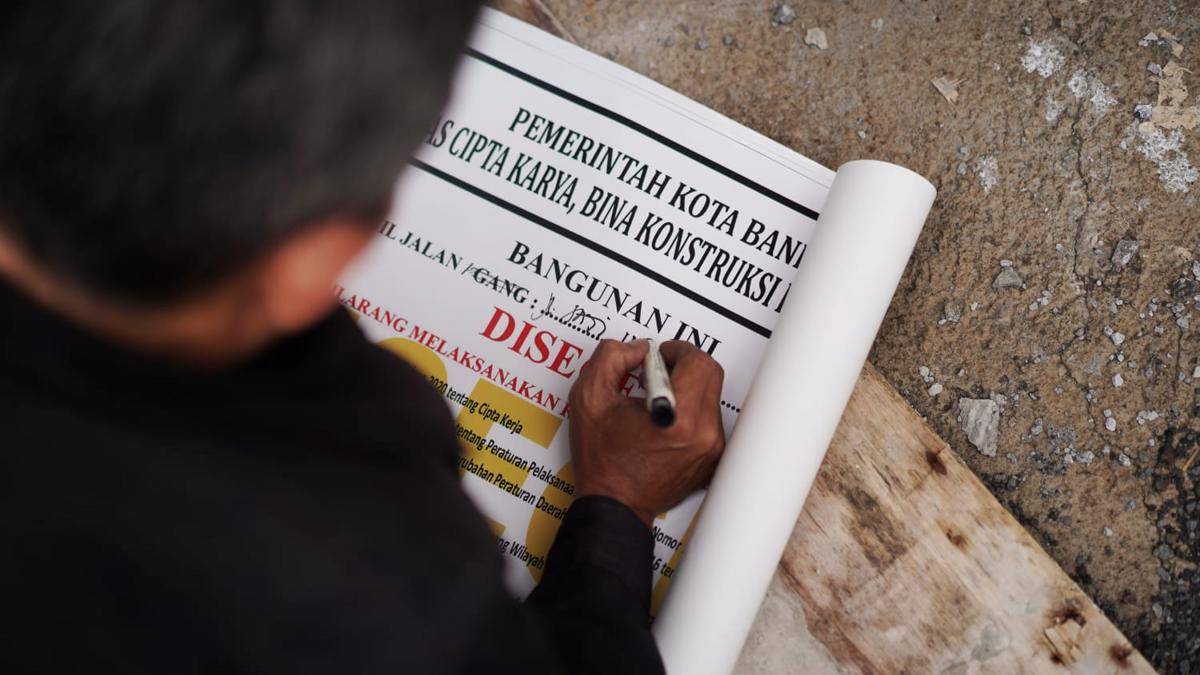 PEMERINTAH KOTA BAN
AS CIPTA KARYA, BINA KONSTRUKSI
BANGUNAN INI
IL JALAN / GANG :
DISE
LARANG MELAKSANAKAN
2020 tentang Cipta Kerja
tentang Peraturan Pelaksanaa
rubahan Peraturan Daerah Nomor
ng Wilayah 16 ten